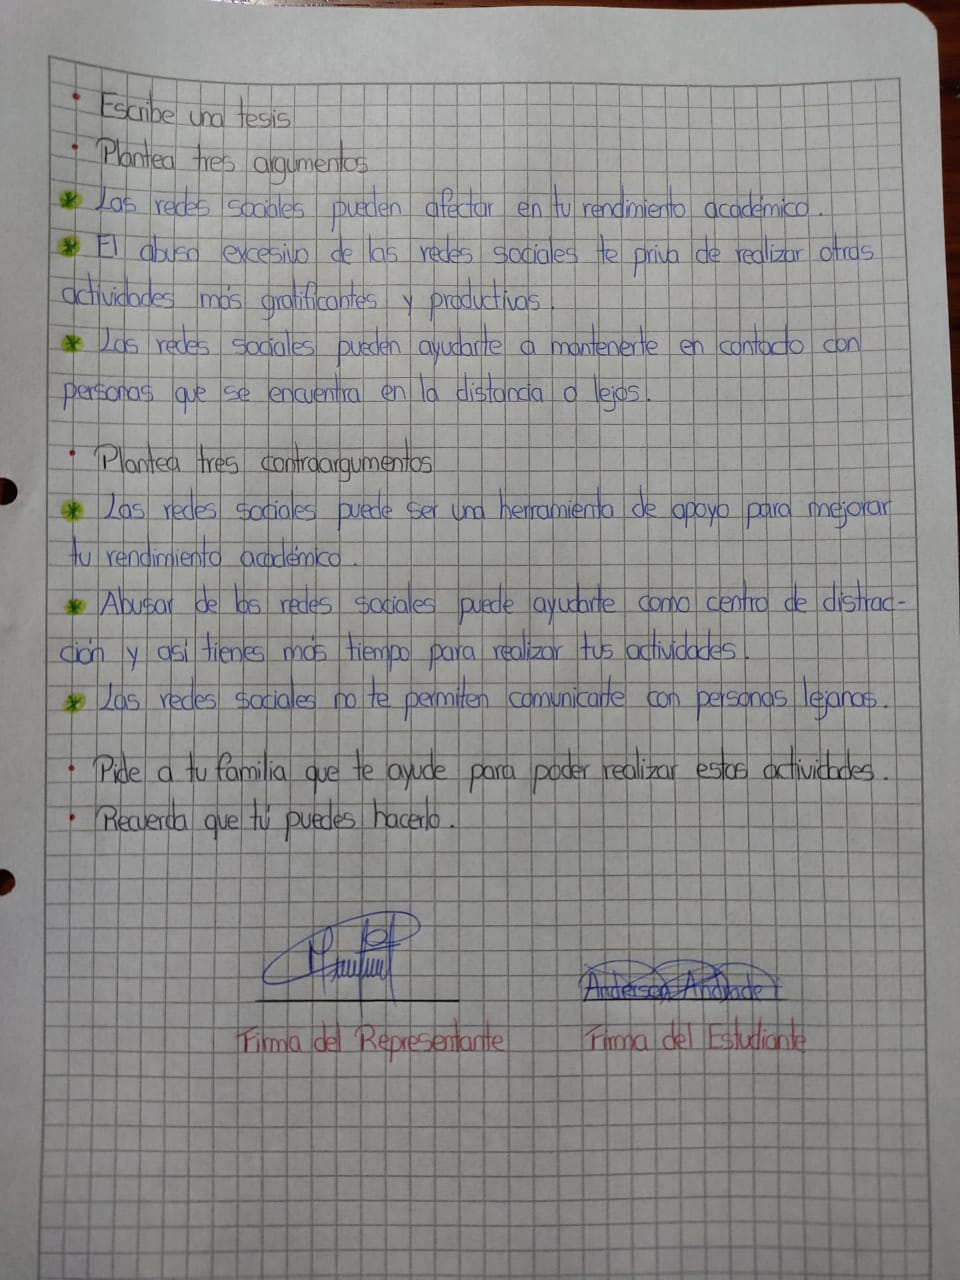 • Escribe una tesis
• Plantea tres argumentos
* Las redes sociales pueden afectar en tu rendimiento académico.
* El abuso excesivo de las redes sociales te priva de realizar otras
actividades más gratificantes y productivas.
* Las redes sociales pueden ayudarte a mantenerte en contacto con
personas que se encuentra en la distancia o lejos.
• Plantea tres contraargumentos
* Las redes sociales puede ser una herramienta de apoyo para mejorar
tu rendimiento académico.
* Abusar de las redes sociales puede ayudarte como centro de distrac-
ción y así tienes más tiempo para realizar tus actividades.
* Las redes sociales no te permiten comunicarte con personas lejanas.
• Pide a tu familia que te ayude para poder realizar estas actividades.
• Recuerda que tú puedes hacerlo.
Anderson Andrade
Firma del Representante Firma del Estudiante